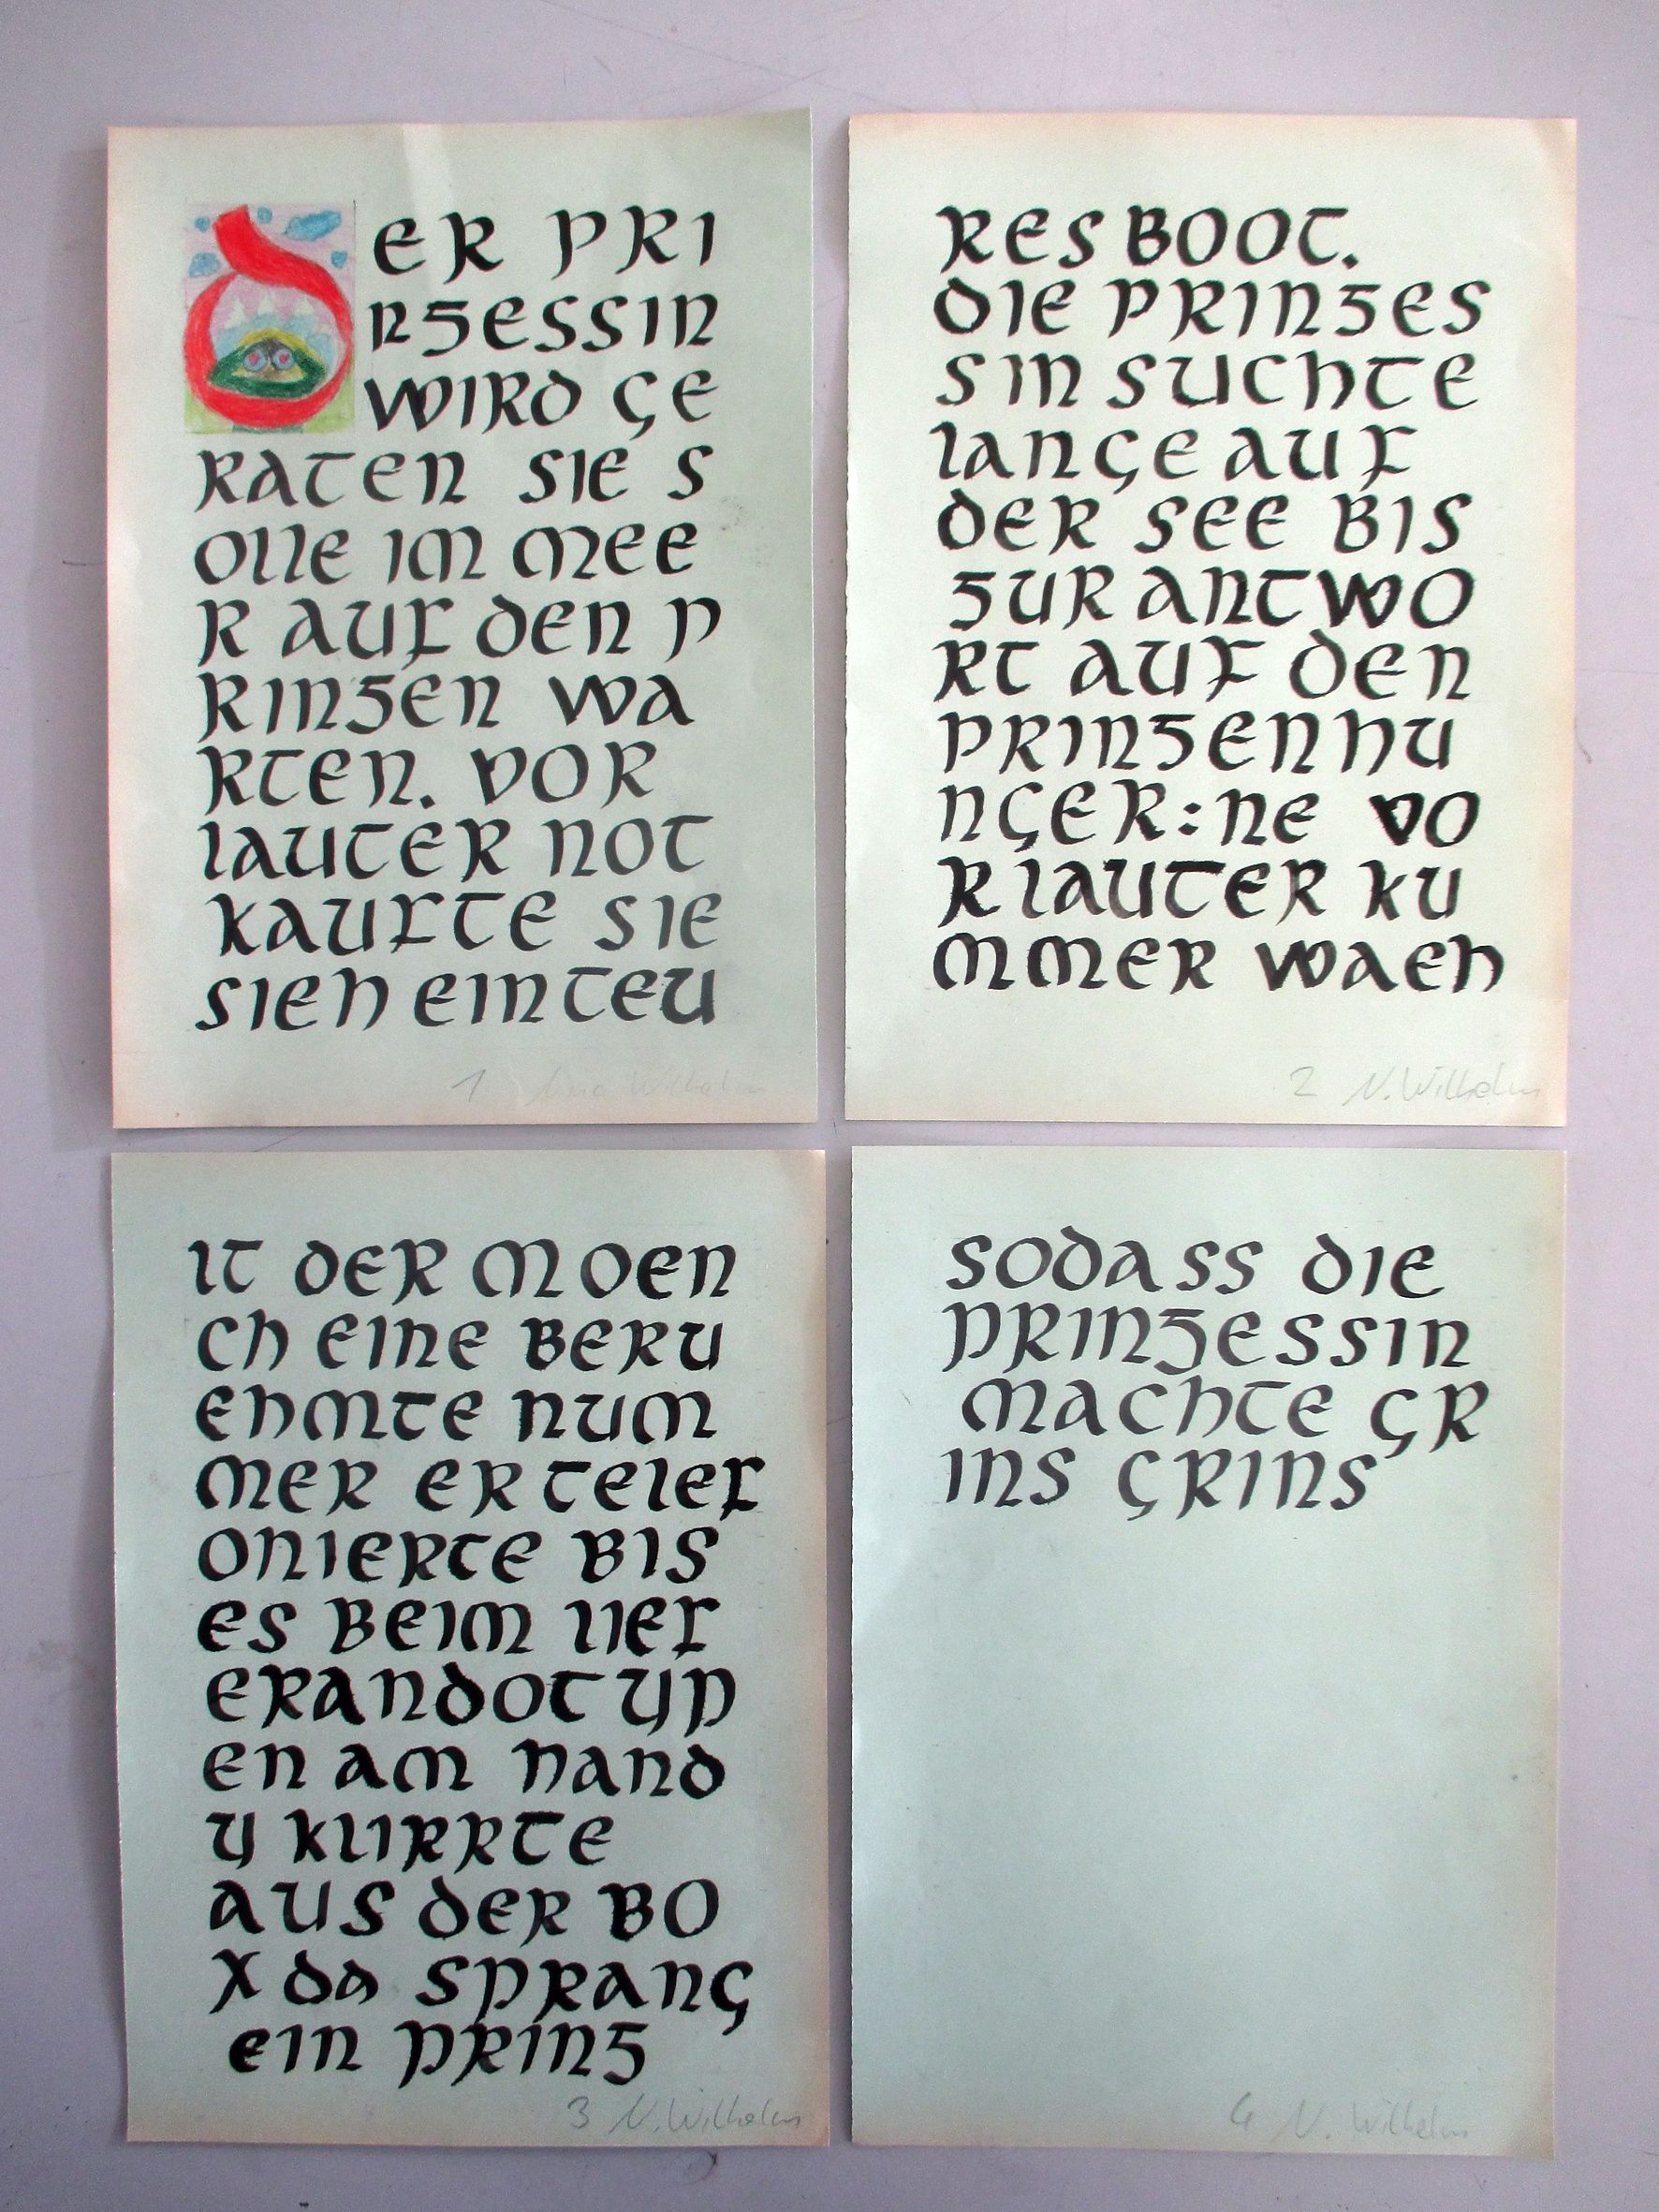 DER PRI
NZESSIN
WIRD GE
RATEN SIE S
OLLE IM MEE
R AUF DEN P
RINZEN WA
RTEN. VOR
LAUTER NOT
KAUFTE SIE
SIEH EIN TEU
1 Nina Wilhelm
RES BOOT.
DIE PRINZES
SIN SUCHTE
LANGE AUF
DER SEE BIS
ZUR ANTWO
RT AUF DEN
PRINZENHU
NGER: NE VO
R LAUTER KU
MMER WAEH
2 N. Wilhelm
LT DER MOEN
CH EINE BERU
EHMTE NUM
MER ER TELEF
ONIERTE BIS
ES BEIM LIEF
ERANDOTYP
EN AM HAND
Y KLIRRTE
AUS DER BO
X DA SPRANG
EIN PRINZ
3 N. Wilhelm
SODASS DIE
PRINZESSIN
MACHTE GR
INS GRINS
4 N. Wilhelm